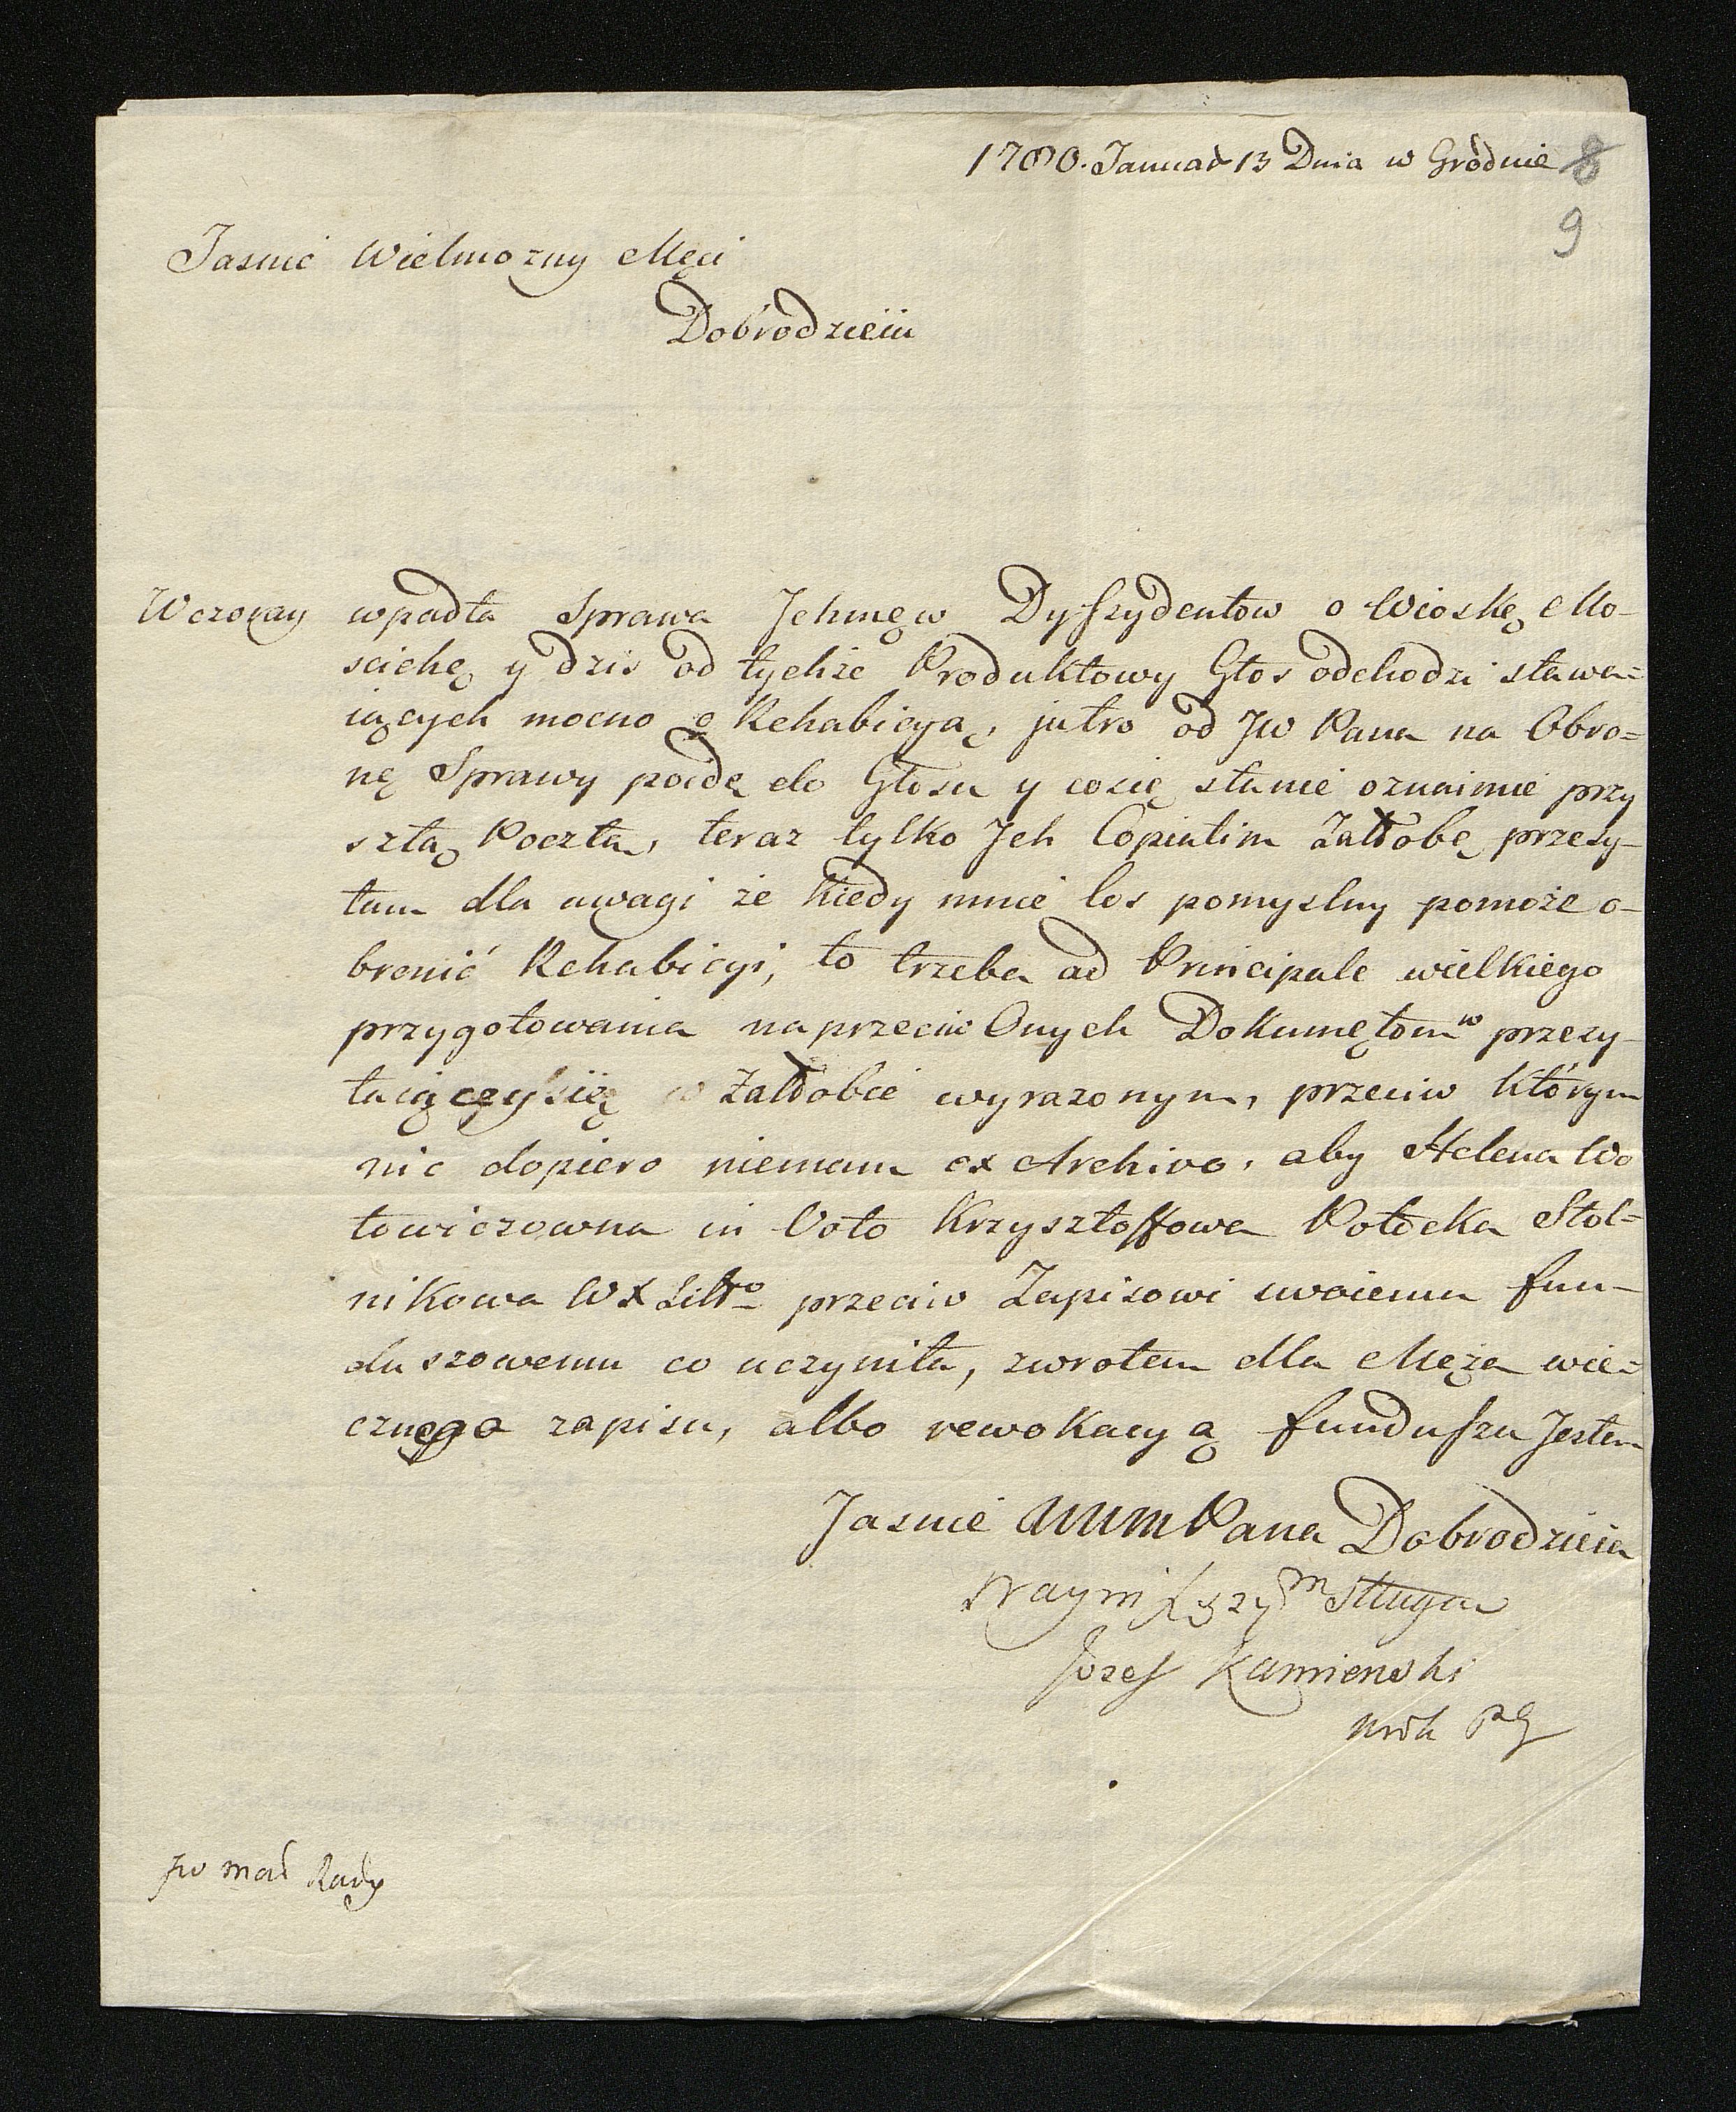 1780. Januar 13 Dnia w Grodnie 8
9
Jasnie Wielmozny Męci
Dobrodzieiu
Wczoray wpadła Sprawa Jchmęw Dyſszydentow o Wioskę Mo-
scichę y dzis od tychże Produktowy Głos odchodzi stawa=
iących mocno o Rehabicyą, jutro od JW Pana na Obro=
nę Sprawy poidę do Głosu y cosię stanie oznaimie przy
szłą Pocztą, teraz tylko Jch Copiatim Załobę przesy-
łam dla uwagi że kiedy mnie los pomyslny pomoże o-
bronić Rehabicyi, to trzeba ad Principale wielkiego
przygotowania naprzeciw Onych Dokumętom w przesy-
łaiącęysię w Załobie wyrazonym, przeciw którym
nic dopiero niemam ex Archivo, aby Helena Wo
łowiczowna in Voto Krzysztoffowa Potocka Stol=
nikowa WX Litto przeciw Zapisowi swoiemu fun-
duszowemu co uczyniła, zwrotem dla Męża wie=
cznęgo zapisu, albo rewokacyą funduſzu Jestem
Jasnie WWM Pana Dobrodzieia
Nayniſszym Sługą
Jozef Kamienski
JW Mar Rady